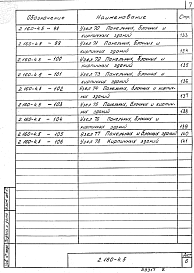 7
Обозначение Наименование Стр.
2.160-4.5 - 98 Узел 70 Панельных, блочных и
кирпичных зданий 133
2.160-4.5 - 99 Узел 71 Панельных, блочных и
кирпичных зданий 134
2.160-4.5 - 100 Узел 72 Панельных, блочных и
кирпичных зданий 135
2.160-4.5 - 101 Узел 73 Панельных, блочных и
кирпичных зданий 136
2.160-4.5 - 102 Узел 74 Панельных, блочных и кирпич-
ных зданий 137
2.160-4.5 - 103 Узел 75 Панельных, блочных и кирпич-
ных зданий 138
2.160-4.5 - 104 Узел 76 Панельных, блочных и
кирпичных зданий 139
2.160-4.5 - 105 Узел 77 Панельных и блочных зданий 140
2.160-4.5 - 106 Узел 78 Кирпичных зданий 141
2.160-4.5
6